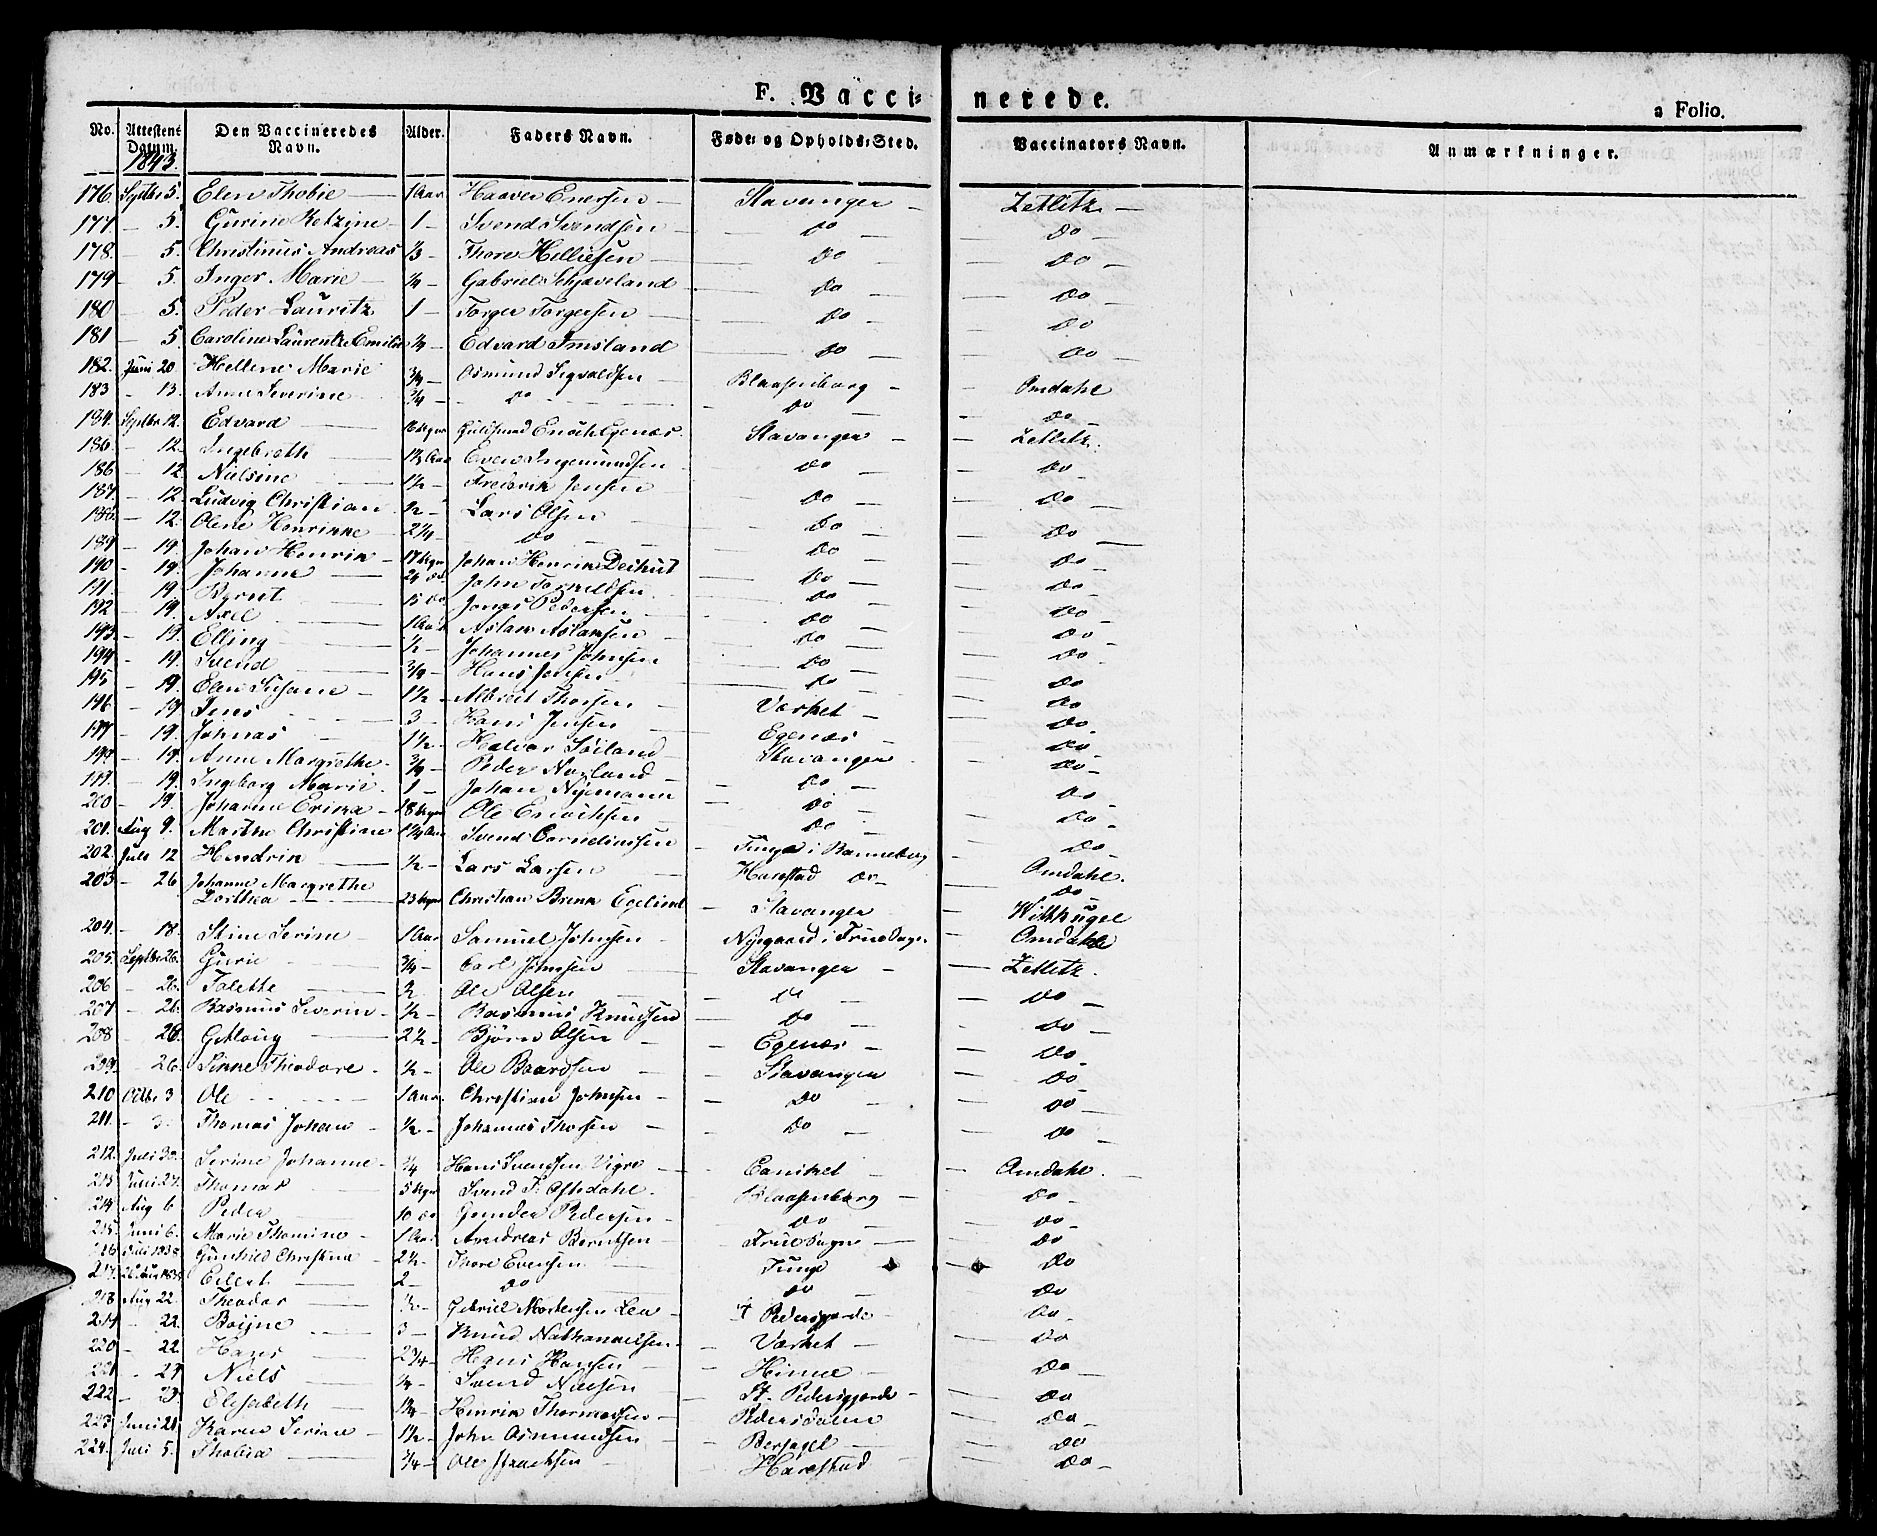 F. Vaccinerede.
a Folio.
No. Attestens Datum. Den Vaccineredes Navn. Alder. Faders Navn. Føde- og Opholds-Sted. Vaccinators Navn. Anmærkninger.
1843.
176. Septbr 5. Elen Thobie — 1 Aar Haaver Enersen — Stavanger — Zetlitz —
177 — 5. Gurine Retzine — 1 — Svend Svendsen — do — do —
178. — 5. Christinus Andreas ⅓ — Thore Helliesen — do — do —
179 — 5. Inger Marie ¼ — Gabriel Skjæveland — do — do
180 — 5. Peder Lauritz 1 — Torger Torgersen — do — do
181 — 5. Caroline Laurentze Emilie ¼ — Edvard Imsland — do — do
182. Juni 20 Hellene Marie ¾ — Osmund Sigvaldsen — Blaasenborg — Omdahl
183 — 13. Anne Severine ¾ — do — do — do —
184. Septbr 12. Edvard — 16 Uger Guldsmed Enoch Egenæs. Stavanger — Zetlitz.
185. — 12. Ingebreth — Aar Even Ingemundsen do — do —
186 — 12 Nielsine 1½ — Frederik Jensen do — do —
187. — 12. Ludvig Christian ½ — Lars Olsen — do — do —
188. — 12. Olene Henrikke — 2¼ — do — do — do
189 — 19. Johan Henrik — 17 Uger Johan Henrik — do — do —
190 — 19. Johanne — 24 do John Torkildsen. — do — do —
191. — 19. Bernt — 15 do Jonas Pedersen — do — do —
192 — 19. Axel — 1 Aar Aslak Aslaksen — do — do —
193. — 19. Elling — ½ — Johannes Johnsen — do — do
194 — 19. Svend — ¾ — Hans Jensen — do — do —
195 — 19. Elen Susane — 1½ — Albret Thorsen — Værket — do
196 — 19 Jens — 3 — Hans Jensen — Egenæs — do —
197 — 19. Johnas — 1½ — Halvor Soiland — Stavanger do —
198 — 19. Anne Margrethe — ¾ — Peder Norland — do — do —
199. — 19. Ingeborg Marie. 1 — Johan Nyemann — do — do —
200 — 19. Johanne Erika — 18 Uger Ole Enochsen — do — do —
201. Aug 9. Marthe Christine Aar Svend Cornelius­sen — Tunge i Ranneberg do —
202. Juli 12 Hendrik — ½ — Lars Larsen — Harestad do — Omdahl.
203 — 26 Johanne Margrethe Dorthea — 23 Uger Christian Brink — Stavanger — do Withkugel
204. — 18. Stine Serine — 1 Aar Samuel Johnsen — Nygaard i Frue Sogn — Omdahl
205. Septbr 26. Gurie ¾ — Carl Johnsen — Stavanger — Zetlitz.
206 — 26. Talette — ½ Ole Olsen — do — do —
207. — 26. Rasmus Severin — ½ — Rasmus Knudsen — do — do —
208 — 26. 2½ — Bjørn Olsen — Egenæs — do —
209. — 26. Sinne Theodore — ½ — Ole Baardsen — Stavanger — do
210 Octbr 3 Ole — 1 Aar. Christian Johnsen — do — do —
211. — 3. Thomas Johan — ½ — Johannes Thorsen — do — do —
212. Juli 30. Serine Johanne — ¼ Hans Svendsen Vigre — — Omdahl. —
213 Juni 27. Thomas 5 Uger Svend T. Oftedahl. — Blaasenborg — do —
214 Aug 6 Peder — 10 do Gunder Pedersen — do — do —
215. Juni 6. Marie Thomine — 1 Aar Andreas Berntsen — Frue Sogn — do
216 Juli 1838. Gunhild Christine — 2½ — Thore Evensen — Tunge — do
217. Eilert — 2 — do do — do
218 Aug 22. Theodor — ½ — Gabriel Mortensen Lea — St Pedersgjerde — do —
219 — 22. Boijne — 3 — Knud Nathanaelsen — Værket — do
220 — 22 Hans — 2¾ — Hans Hansen — Hinne — do —
221. — 27 Niels — ¼ — Svend Nielsen — St. Pedersgjerde — do
222 — 23. Elisabeth — 1¼ — Henrik Thormodsen — Pedersdalen — do —
223 Juni 21. Karen Serine — 1½ — John Osmundsen — Bersagel — do
224. Juli 5. Thobia — ¾ — Ole Isacksen — Harestad — do —